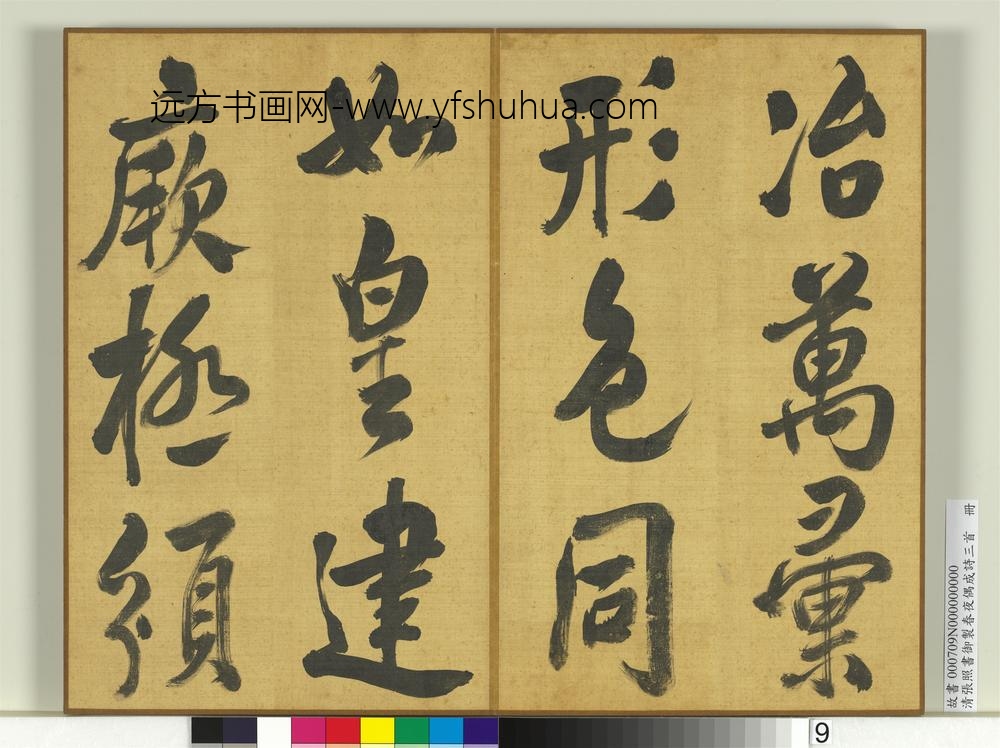 冶萬彙
形色同
如皇建
厥極
远方书画网-www.yfshuhua.com
故書 000709N000000000
清張照書御製春夜偶成詩三首 冊
9